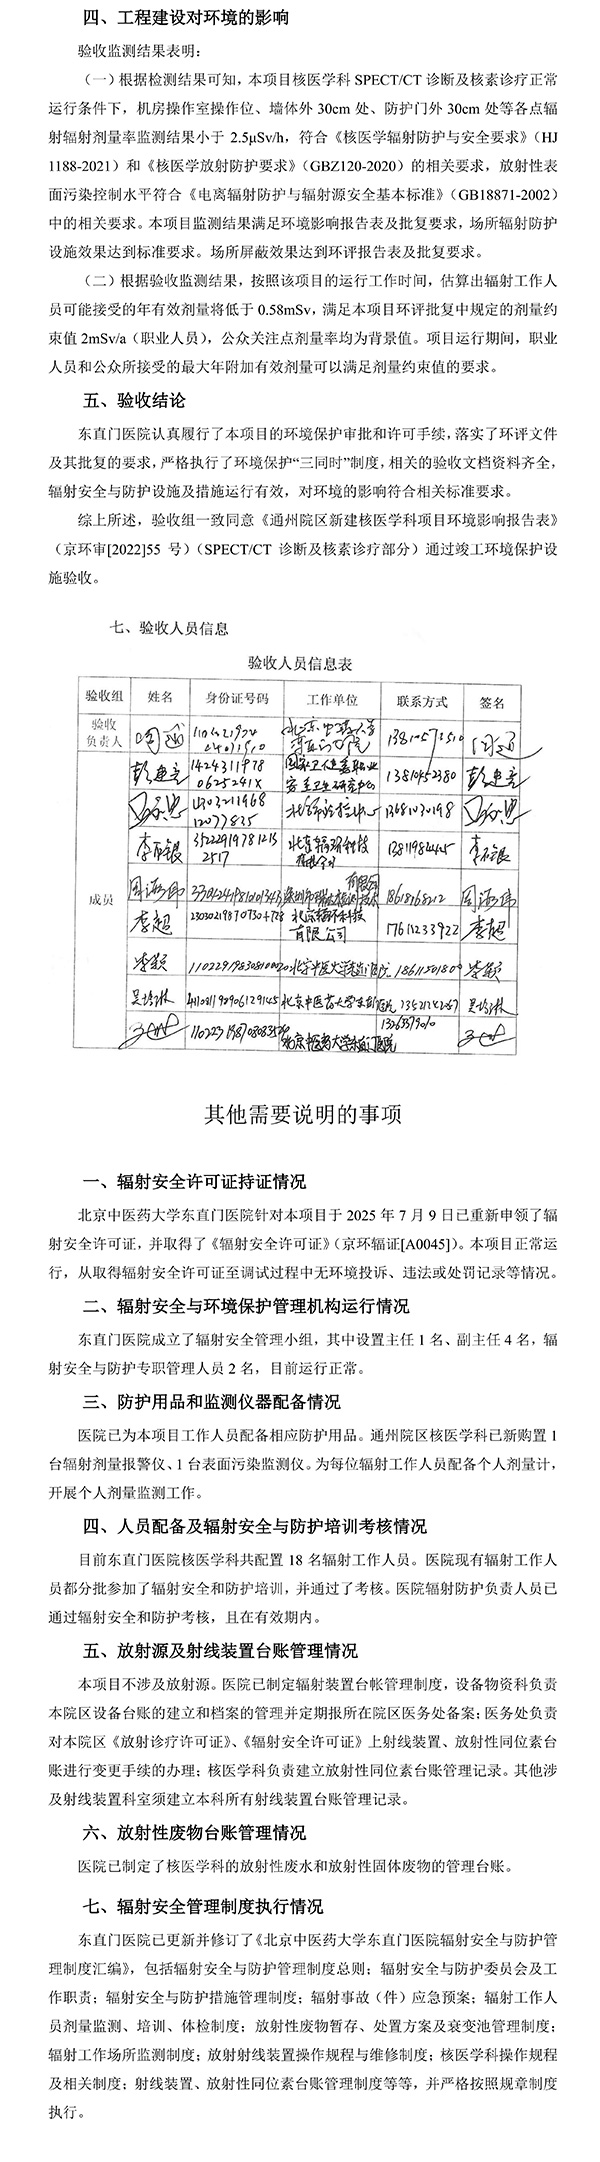 四、工程建设对环境的影响
验收监测结果表明：
（一）根据检测结果可知，本项目核医学科 SPECT/CT 诊断及核素诊疗正常
运行条件下，机房操作室操作位、墙体外 30cm 处、防护门外 30cm 处等各点辐
射辐射剂量率监测结果小于 2.5μSv/h，符合《核医学辐射防护与安全要求》（HJ
1188-2021）和《核医学放射防护要求》（GBZ120-2020）的相关要求，放射性表
面污染控制水平符合《电离辐射防护与辐射源安全基本标准》（GB18871-2002）
中的相关要求。本项目监测结果满足环境影响报告表及批复要求，场所辐射防护
设施效果达到标准要求。场所屏蔽效果达到环评报告表及批复要求。
（二）根据验收监测结果，按照该项目的运行工作时间，估算出辐射工作人
员可能接受的年有效剂量将低于 0.58mSv，满足本项目环评批复中规定的剂量约
束值 2mSv/a（职业人员），公众关注点剂量率均为背景值。项目运行期间，职业
人员和公众所接受的最大年附加有效剂量可以满足剂量约束值的要求。
五、验收结论
东直门医院认真履行了本项目的环境保护审批和许可手续，落实了环评文件
及其批复的要求，严格执行了环境保护“三同时”制度，相关的验收文档资料齐全，
辐射安全与防护设施及措施运行有效，对环境的影响符合相关标准要求。
综上所述，验收组一致同意《通州院区新建核医学科项目环境影响报告表》
（京环审[2022]55 号）（SPECT/CT 诊断及核素诊疗部分）通过竣工环境保护设
施验收。
七、验收人员信息
验收人员信息表
验收组 姓名 身份证号码 工作单位 联系方式 签名
验收
负责人
成员
李石银 李石银
李超 有限公司 李超
北京中医药大学东直门医院
其他需要说明的事项
一、辐射安全许可证持证情况
北京中医药大学东直门医院针对本项目于 2025 年 7 月 9 日已重新申领了辐
射安全许可证，并取得了《辐射安全许可证》（京环辐证[A0045]）。本项目正常运
行，从取得辐射安全许可证至调试过程中无环境投诉、违法或处罚记录等情况。
二、辐射安全与环境保护管理机构运行情况
东直门医院成立了辐射安全管理小组，其中设置主任 1 名、副主任 4 名，辐
射安全与防护专职管理人员 2 名，目前运行正常。
三、防护用品和监测仪器配备情况
医院已为本项目工作人员配备相应防护用品。通州院区核医学科已新购置 1
台辐射剂量报警仪、1 台表面污染监测仪。为每位辐射工作人员配备个人剂量计，
开展个人剂量监测工作。
四、人员配备及辐射安全与防护培训考核情况
目前东直门医院核医学科共配置 18 名辐射工作人员。医院现有辐射工作人
员都分批参加了辐射安全和防护培训，并通过了考核。医院辐射防护负责人员已
通过辐射安全和防护考核，且在有效期内。
五、放射源及射线装置台账管理情况
本项目不涉及放射源。医院已制定辐射装置台帐管理制度，设备物资科负责
本院区设备台账的建立和档案的管理并定期报所在院区医务处备案；医务处负责
对本院区《放射诊疗许可证》、《辐射安全许可证》上射线装置、放射性同位素台
账进行变更手续的办理；核医学科负责建立放射性同位素台账管理记录。其他涉
及射线装置科室须建立本科所有射线装置台账管理记录。
六、放射性废物台账管理情况
医院已制定了核医学科的放射性废水和放射性固体废物的管理台账。
七、辐射安全管理制度执行情况
东直门医院已更新并修订了《北京中医药大学东直门医院辐射安全与防护管
理制度汇编》，包括辐射安全与防护管理制度总则；辐射安全与防护委员会及工
作职责；辐射安全与防护措施管理制度；辐射事故（件）应急预案；辐射工作人
员剂量监测、培训、体检制度；放射性废物暂存、处置方案及衰变池管理制度；
辐射工作场所监测制度；放射射线装置操作规程与维修制度；核医学科操作规程
及相关制度；射线装置、放射性同位素台账管理制度等等，并严格按照规章制度
执行。